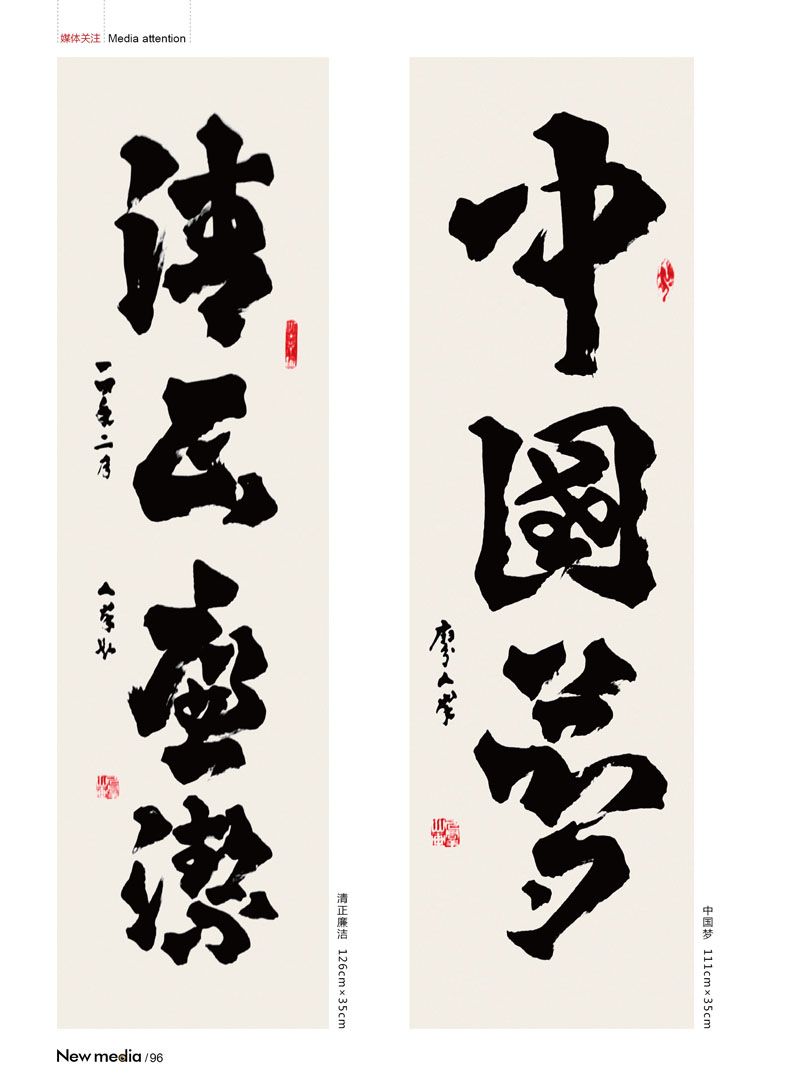 媒体关注 Media attention
清正廉潔
二〇一〇年二月
中國夢
清正廉洁 126cm×35cm
中国梦 111cm×35cm
New media / 96